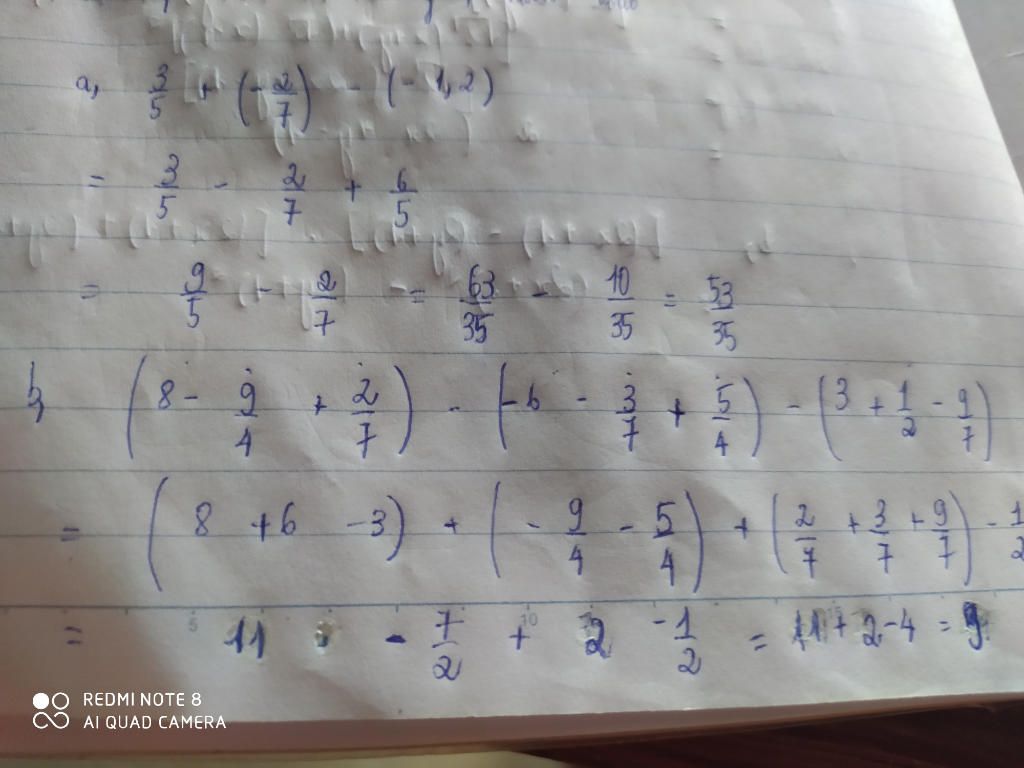 a, 3/5 + (-2/7) - (-1,2)
= 3/5 - 2/7 + 6/5
= 9/5 - 2/7 = 63/35 - 10/35 = 53/35
b, (8 - 9/4 + 2/7) - (-6 - 3/7 + 5/4) - (3 + 1/2 - 9/7)
= (8 + 6 - 3) + (-9/4 - 5/4) + (2/7 + 3/7 + 9/7) - 1/2
= 11 - 7/2 + 2 - 1/2 = 11 + 2 - 4 = 9
5 10 15
REDMI NOTE 8
AI QUAD CAMERA